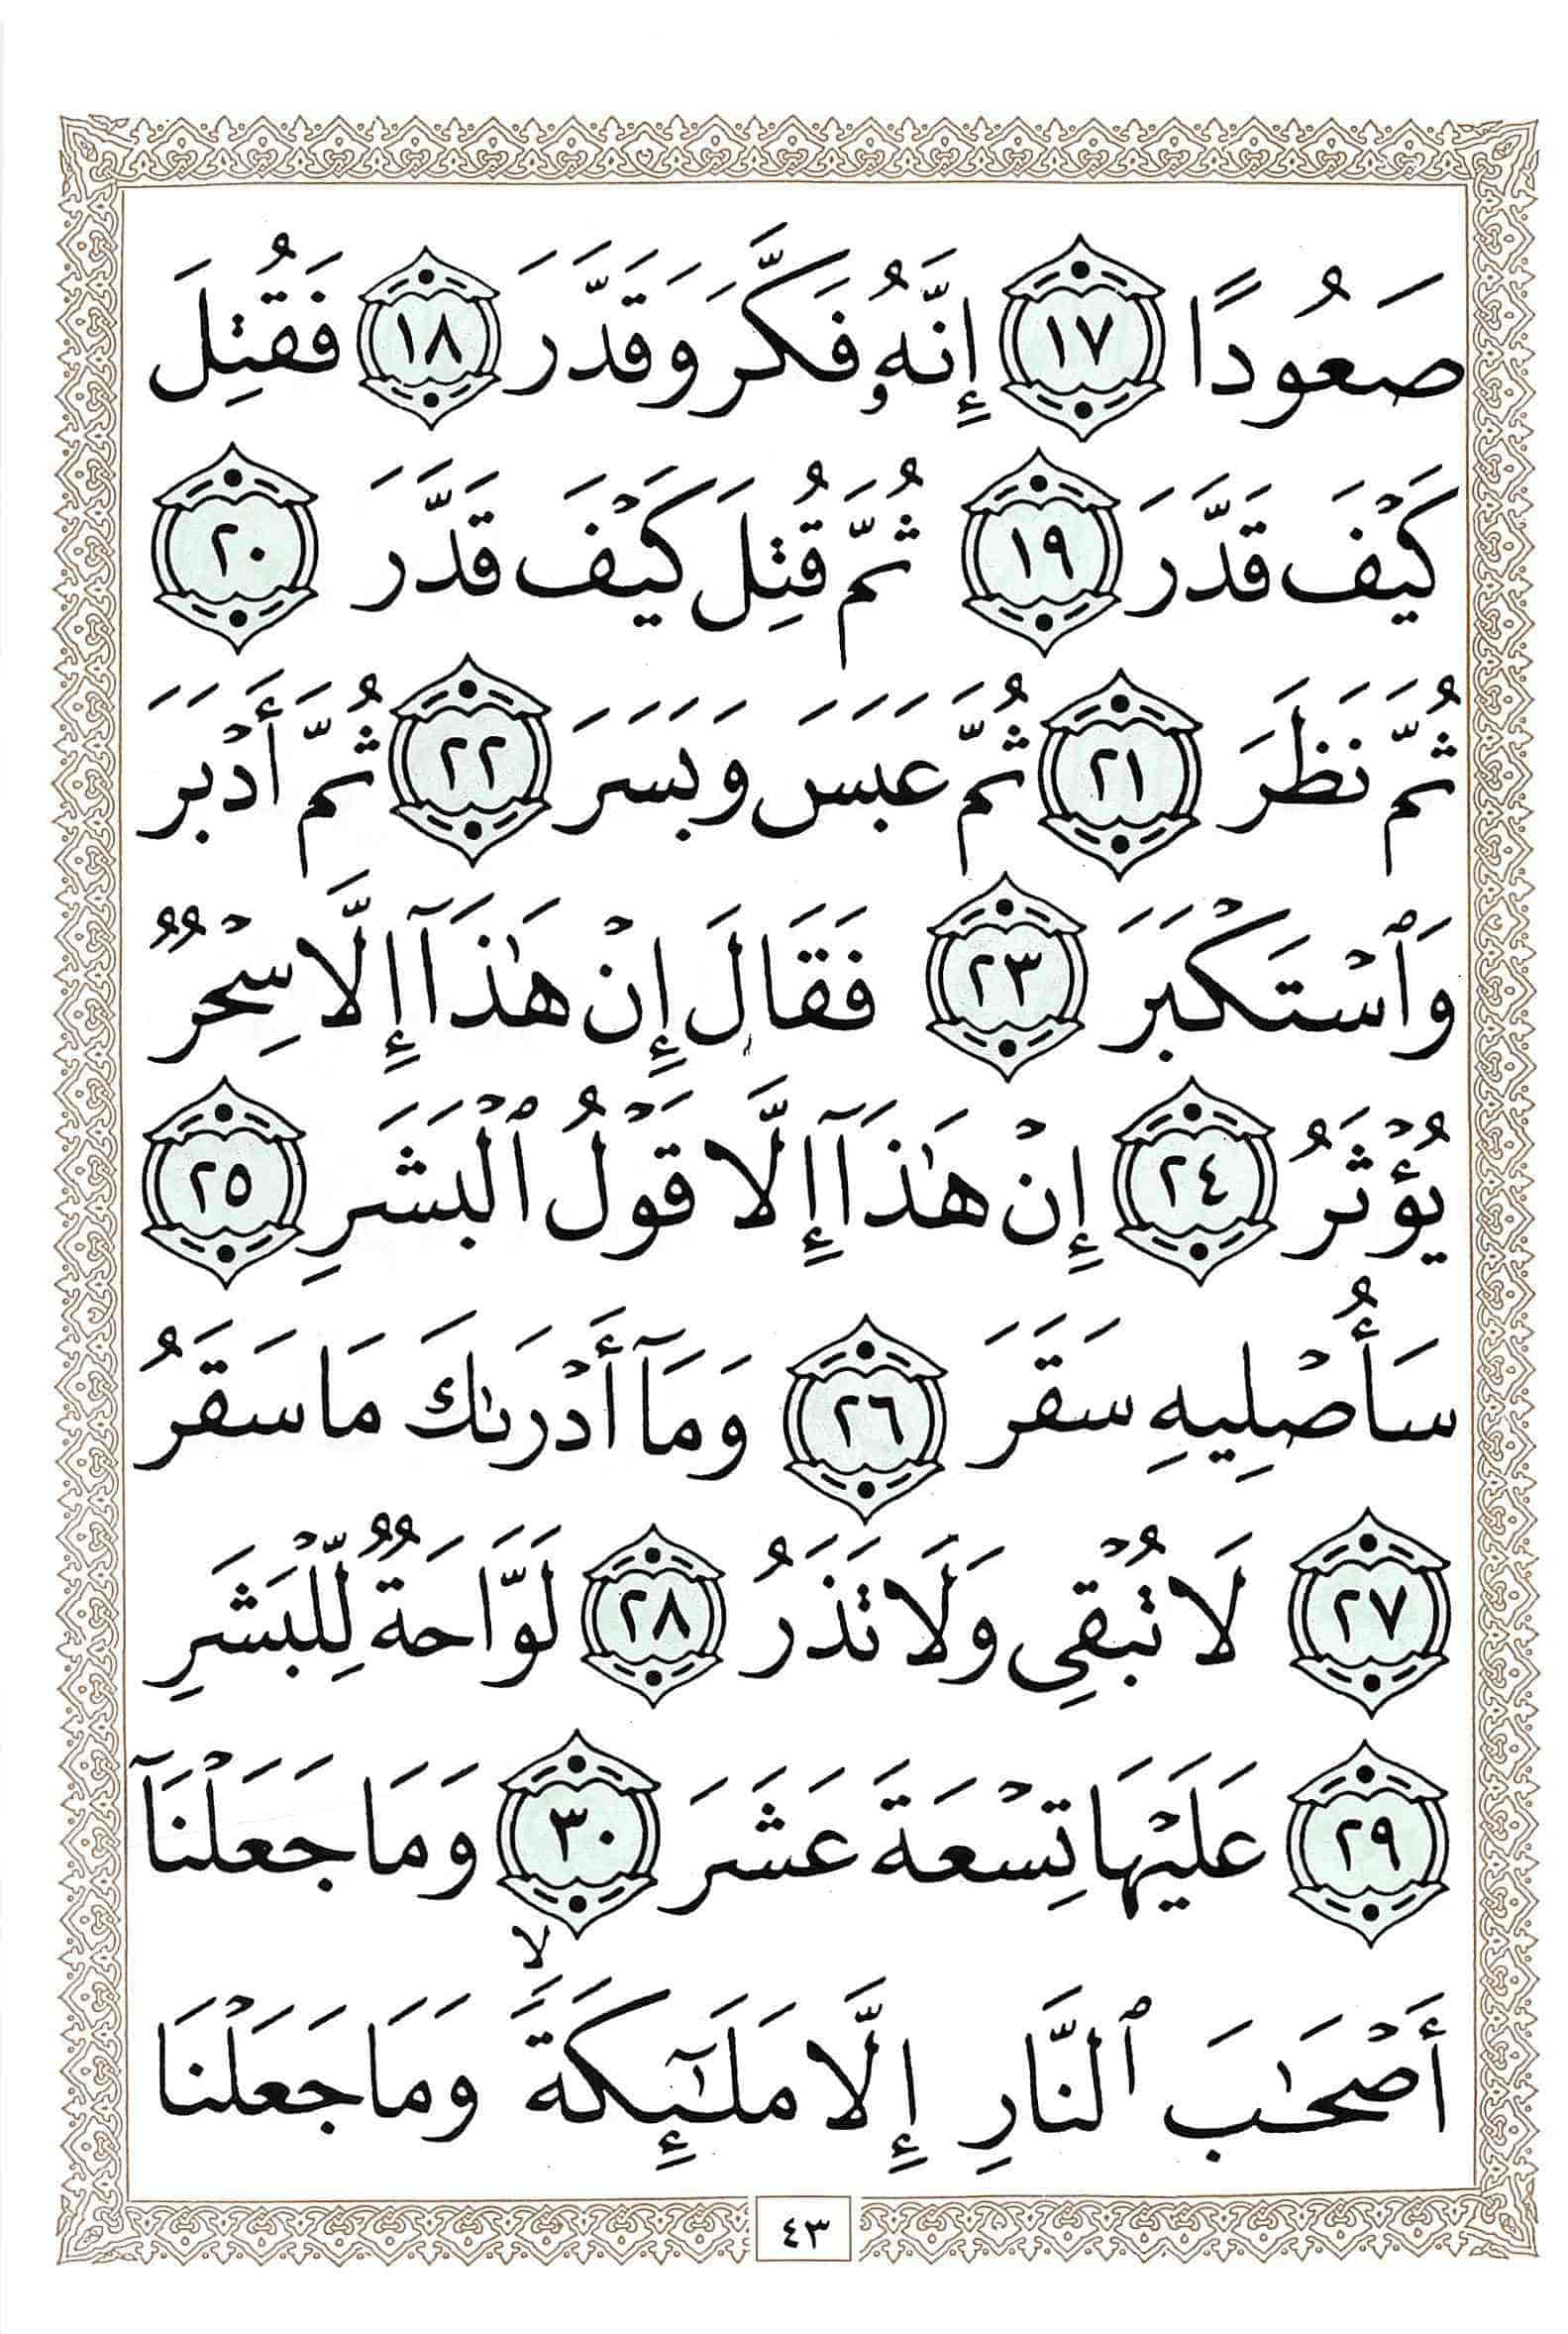 صَعُودًا ١٧ إِنَّهُۥ فَكَّرَ وَقَدَّرَ ١٨ فَقُتِلَ
كَيۡفَ قَدَّرَ ١٩ ثُمَّ قُتِلَ كَيۡفَ قَدَّرَ ٢٠
ثُمَّ نَظَرَ ٢١ ثُمَّ عَبَسَ وَبَسَرَ ٢٢ ثُمَّ أَدۡبَرَ
وَٱسۡتَكۡبَرَ ٢٣ فَقَالَ إِنۡ هَٰذَآ إِلَّا سِحۡرٌ
يُؤۡثَرُ ٢٤ إِنۡ هَٰذَآ إِلَّا قَوۡلُ ٱلۡبَشَرِ ٢٥
سَأُصۡلِيهِ سَقَرَ ٢٦ وَمَآ أَدۡرَىٰكَ مَا سَقَرُ
٢٧ لَا تُبۡقِى وَلَا تَذَرُ ٢٨ لَوَّاحَةٌ لِّلۡبَشَرِ
٢٩ عَلَيۡهَا تِسۡعَةَ عَشَرَ ٣٠ وَمَا جَعَلۡنَآ
أَصۡحَٰبَ ٱلنَّارِ إِلَّا مَلَٰٓئِكَةًۙ وَمَا جَعَلۡنَا
٤٣